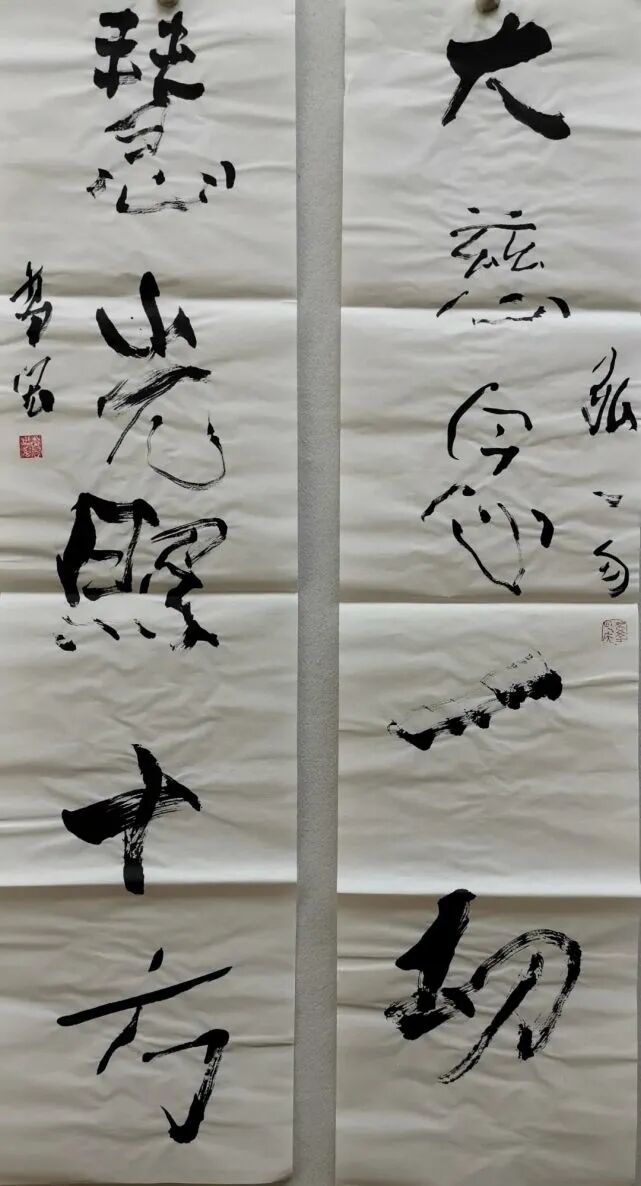 大慈念一切
弘一句
慧光照十方